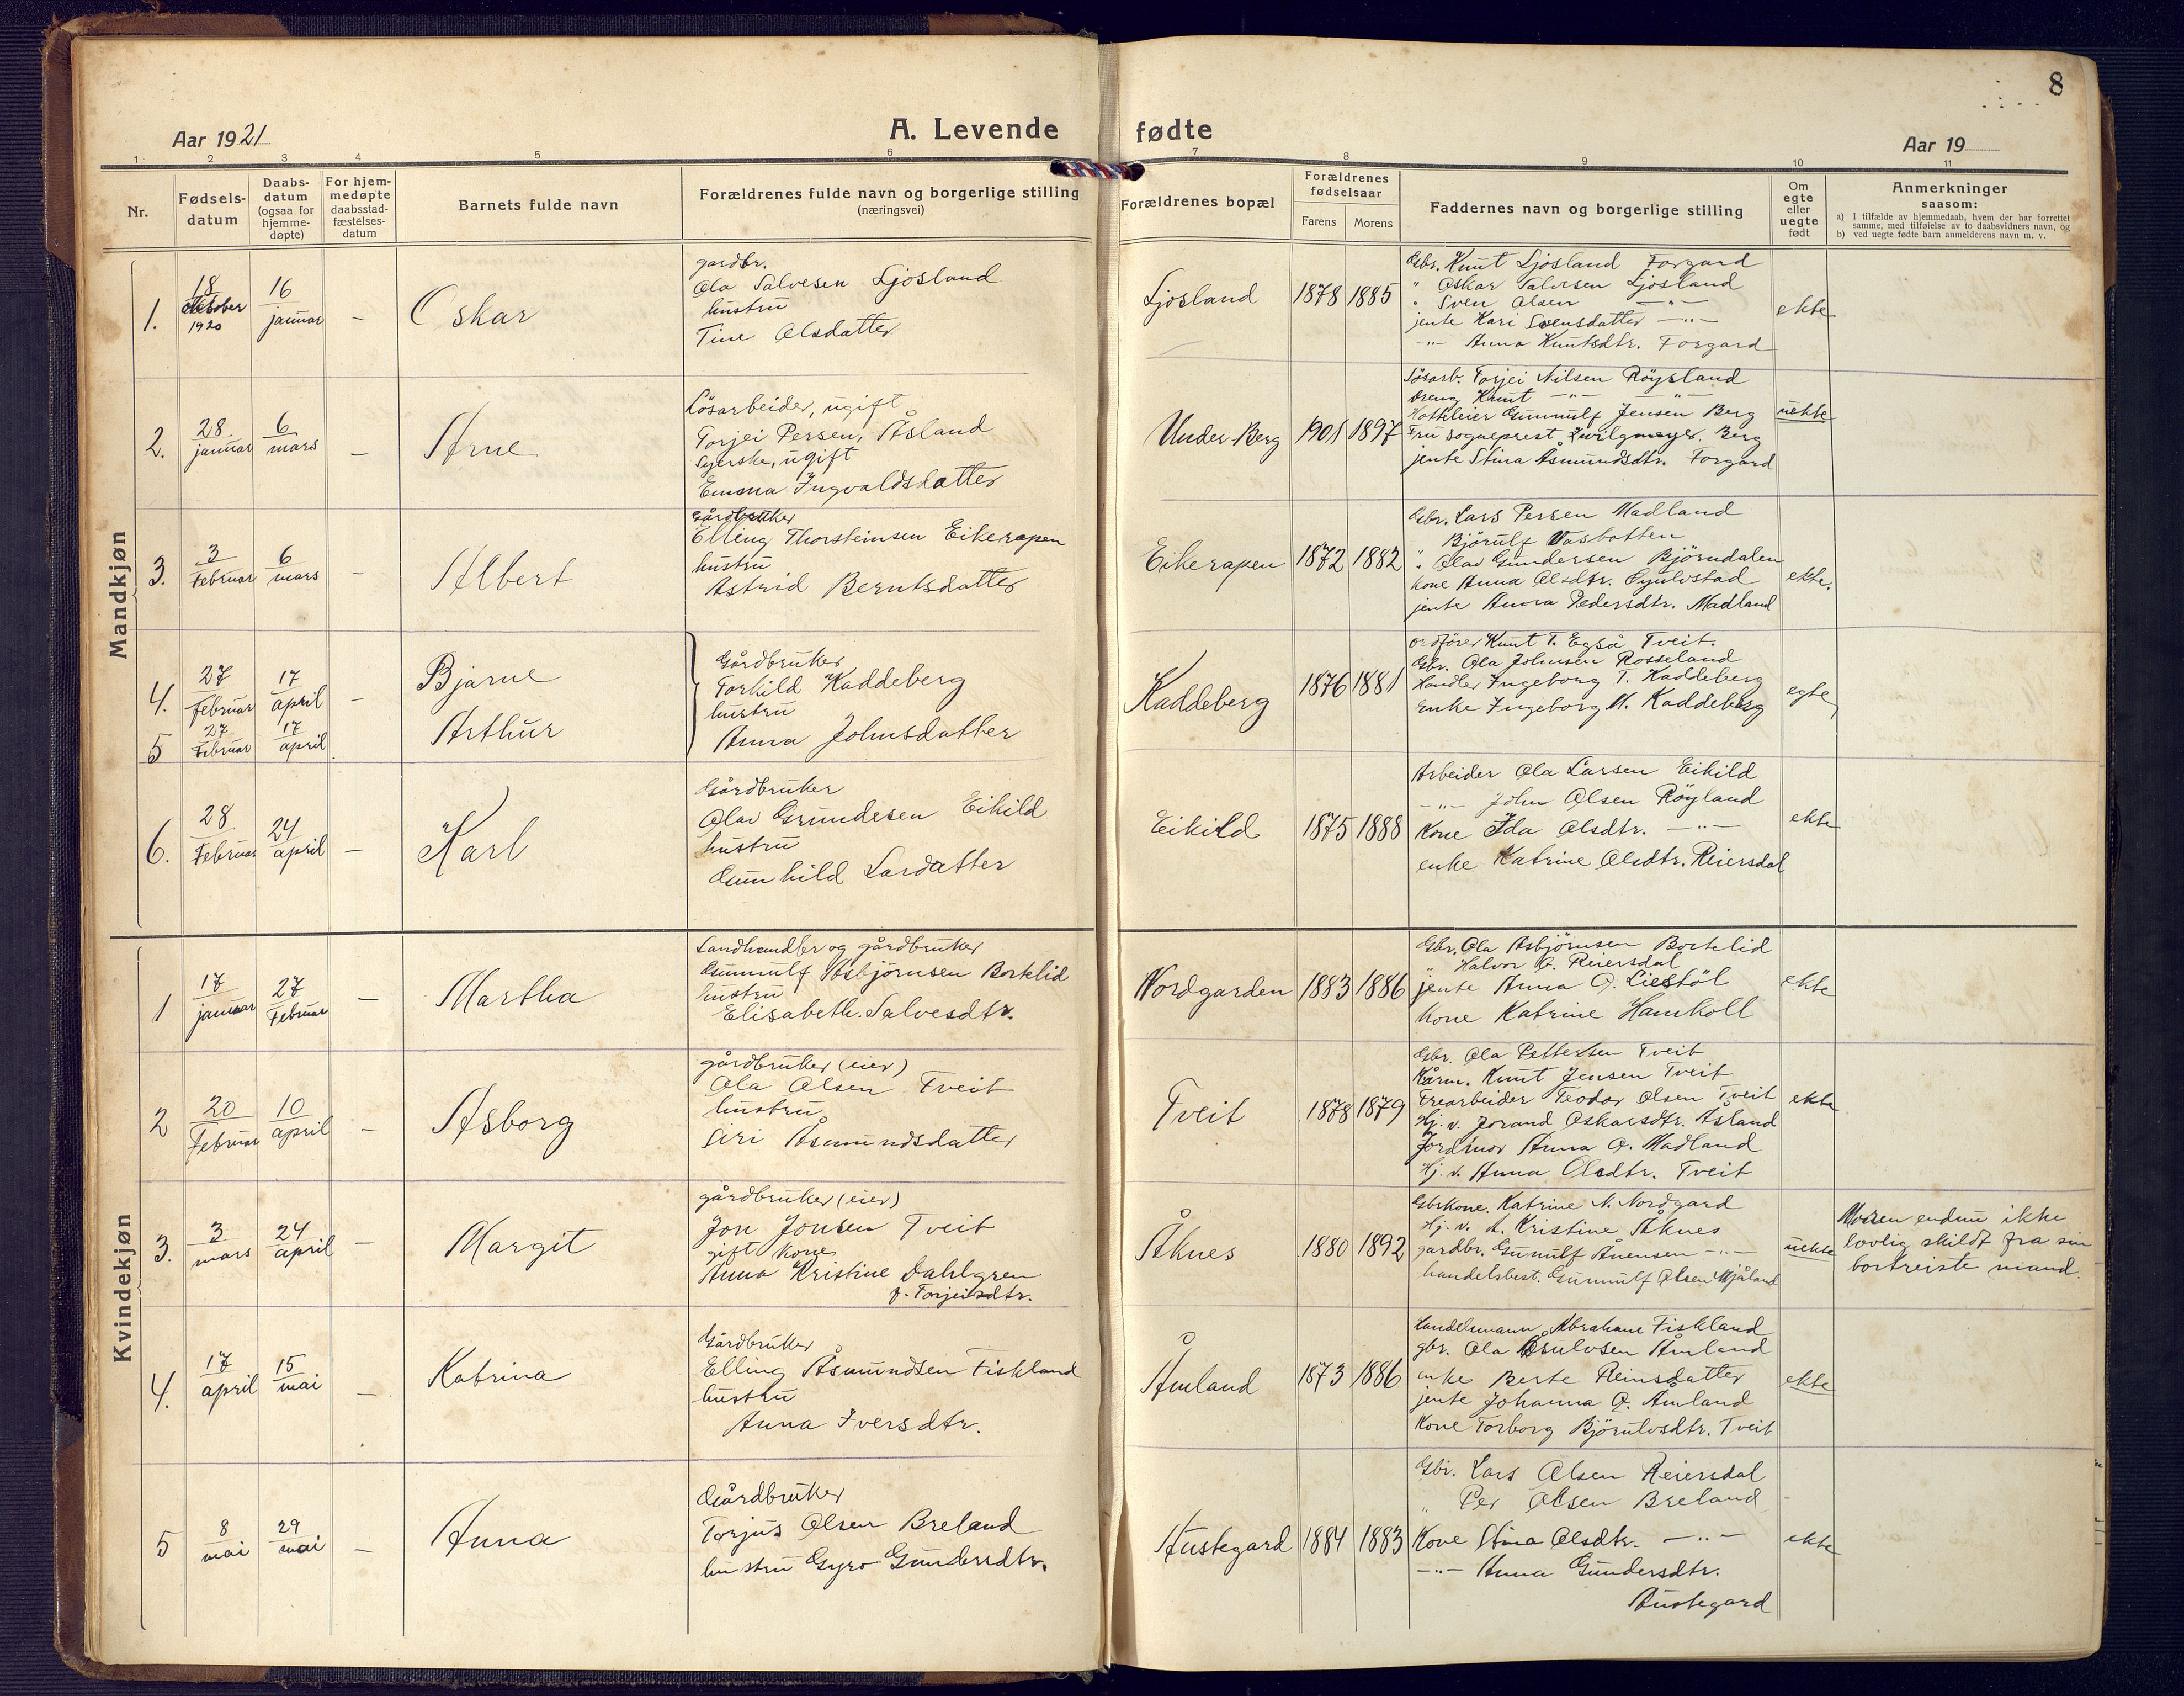 8
Aar 1921
A. Levende
fødte
Aar 19
1 2 3 4 5 6 7 8 9 10 11
Nr.
Fødsels-
datum
Daabs-
datum
(ogsaa for
hjemme-
døpte)
For hjem-
medøpte
daabsstad-
fæstelses-
datum
Barnets fulde navn
Forældrenes fulde navn og borgerlige stilling
(næringsvei)
Forældrenes bopæl
Forældrenes
fødselsaar
Farens
Morens
Faddernes navn og borgerlige stilling
Om
egte
eller
uegte
født
Anmerkninger
saasom:
a) I tilfælde av hjemmedaab, hvem der har forrettet
samme, med tilføielse av to daabsvidners navn, og
b) ved uegte fødte barn anmelderens navn m. v.
Mandkjøn
1.
18
oktober
1920
16
januar
—
Oskar
gardbr.
Ola Salvesen Ljosland
hustru
Tine Olsdatter
Ljosland
1878
1885
Gbr. Knut Ljosland Forgard
" Oskar Salvesen Ljosland
" Sven Olsen —"—
jente Kari Svensdatter —"—
—"— Anna Knutsdtr. Forgard
ekte
2.
28.
januar
6
mars
—
Arne
Løsarbeider, ugift
Torjei Persen, Åsland
Syerske, ugift
Emma Ingvaldsdatter
Under Berg
1901
1897
Løsarb. Torjei Nilsen Röysland
Dreng Knut —"— —"—
Gunnulf Jensen Berg
Fru sogneprest Zwilgmeyer, Berg
jente Stina Åsmundsdtr. Forgard
uekte
3.
3
Februar
6
mars
—
Albert
Gårdbruker
Elling Thorsteinsen Eikerapen
hustru
Astrid Berntsdatter
Eikerapen
1872
1882
Gbr. Lars Persen Madland
Björulf Vasbotten
" Olav Gundersen Björndalen
kone Anna Olsdtr.
jente Anna Pedersdtr. Madland
ekte.
4.
27
februar
17
april
—
Bjarne
5
27
Februar
17
april
Arthur
Gårdbruker
Torkild Kaddeberg
hustru
Anna Johnsdatter
Kaddeberg
1876
1881
ordfører Knut T. Egså Tveit.
Gbr. Ola Johnsen Rosseland
Handler Ingeborg T. Kaddeberg
Enke Ingeborg M. Kaddeberg
egte
6.
28
Februar
24
april
—
Karl
Gårdbruker
Olav Grundesen Eikild
hustru
Gunhild Lardatter
Eikild
1875
1888
Arbeider Ola Larsen Eikild
—"— John Olsen Röyland
Kone Ida Olsdtr. —"—
enke Katrine Olsdtr. Reiersdal
ekte
Kvindekjøn
1
17
januar
27
Februar
—
Martha
Landhandler og gårdbruker
Gunnulf Asbjörnsen Bortelid
hustru
Elisabeth. Salvesdtr.
Nordgarden
1883
1886
Gbr. Ola Asbjörnsen Bortelid
" Halvor G. Reiersdal
jente Anna O. Liestöl
Kone Katrine Hamkoll
ekte
2
20
Februar
10
april
—
Asborg
gårdbruker (eier)
Ola Olsen Tveit
hustru
Siri Åsmundsdatter
Tveit
1878
1879
Gbr. Ola Pettersen Tveit
Kårm. Knut Jensen Tveit
Trearbeider Teodor Olsen Tveit
Hj. v. Jorand Oskarsdtr. Åsland
Jordmor Anna O. Madland
Hj. v. Anna Olsdtr. Tveit
ekte
3.
3
mars
24
april
—
Margit
gårdbruker (eier)
Jon Jonsen Tveit
gift kone
Anna Kristine Dahlgren
f. Torjeisdtr.
Åknes
1880
1892
Gbrkone. Katrine N. Nordgard
Hj. v. A. Kristine Åknes
gardbr. Gunulf Ånensen —"—
handelsbest. Gunnulf Olsen Mjåland
uekte
Moren endnu ikke
lovlig skildt fra sin
bortreiste mand.
4.
17
april
15
mai
—
Katrina
Gårdbruker
Elling Åsmundsen Fiskland
hustru
Anna Iversdtr.
Åmland
1873
1886
Handelsmann Abraham Fiskland
gbr. Ola Ånulvsen Åmland
enke Berte Reinsdatter
jente Johanna O. Åmland
Kone Torborg Björnulvsdtr. Tveit
ekte
5
8
mai
29
mai
—
Anna
Gårdbruker
Torjus Olsen Breland
hustru Gyro Gundersdtr.
Austegard
1884
1883
Gbr. Lars Olsen Reiersdal
" Per Olsen Breland
Kone Stina Olsdtr. —"—
—"— Anna Gundersdtr.
Austegard
ekte